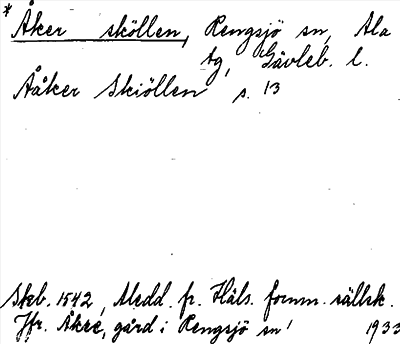 * Åker sköllen, Rengsjö sn, Ala
tg, Gävleb. l.
Aåker Skiöllen s. 13
Skb. 1542, Medd. fr. Häls. fornm. sällsk.
Jfr. Åkre, gård i Rengsjö sn! 1933